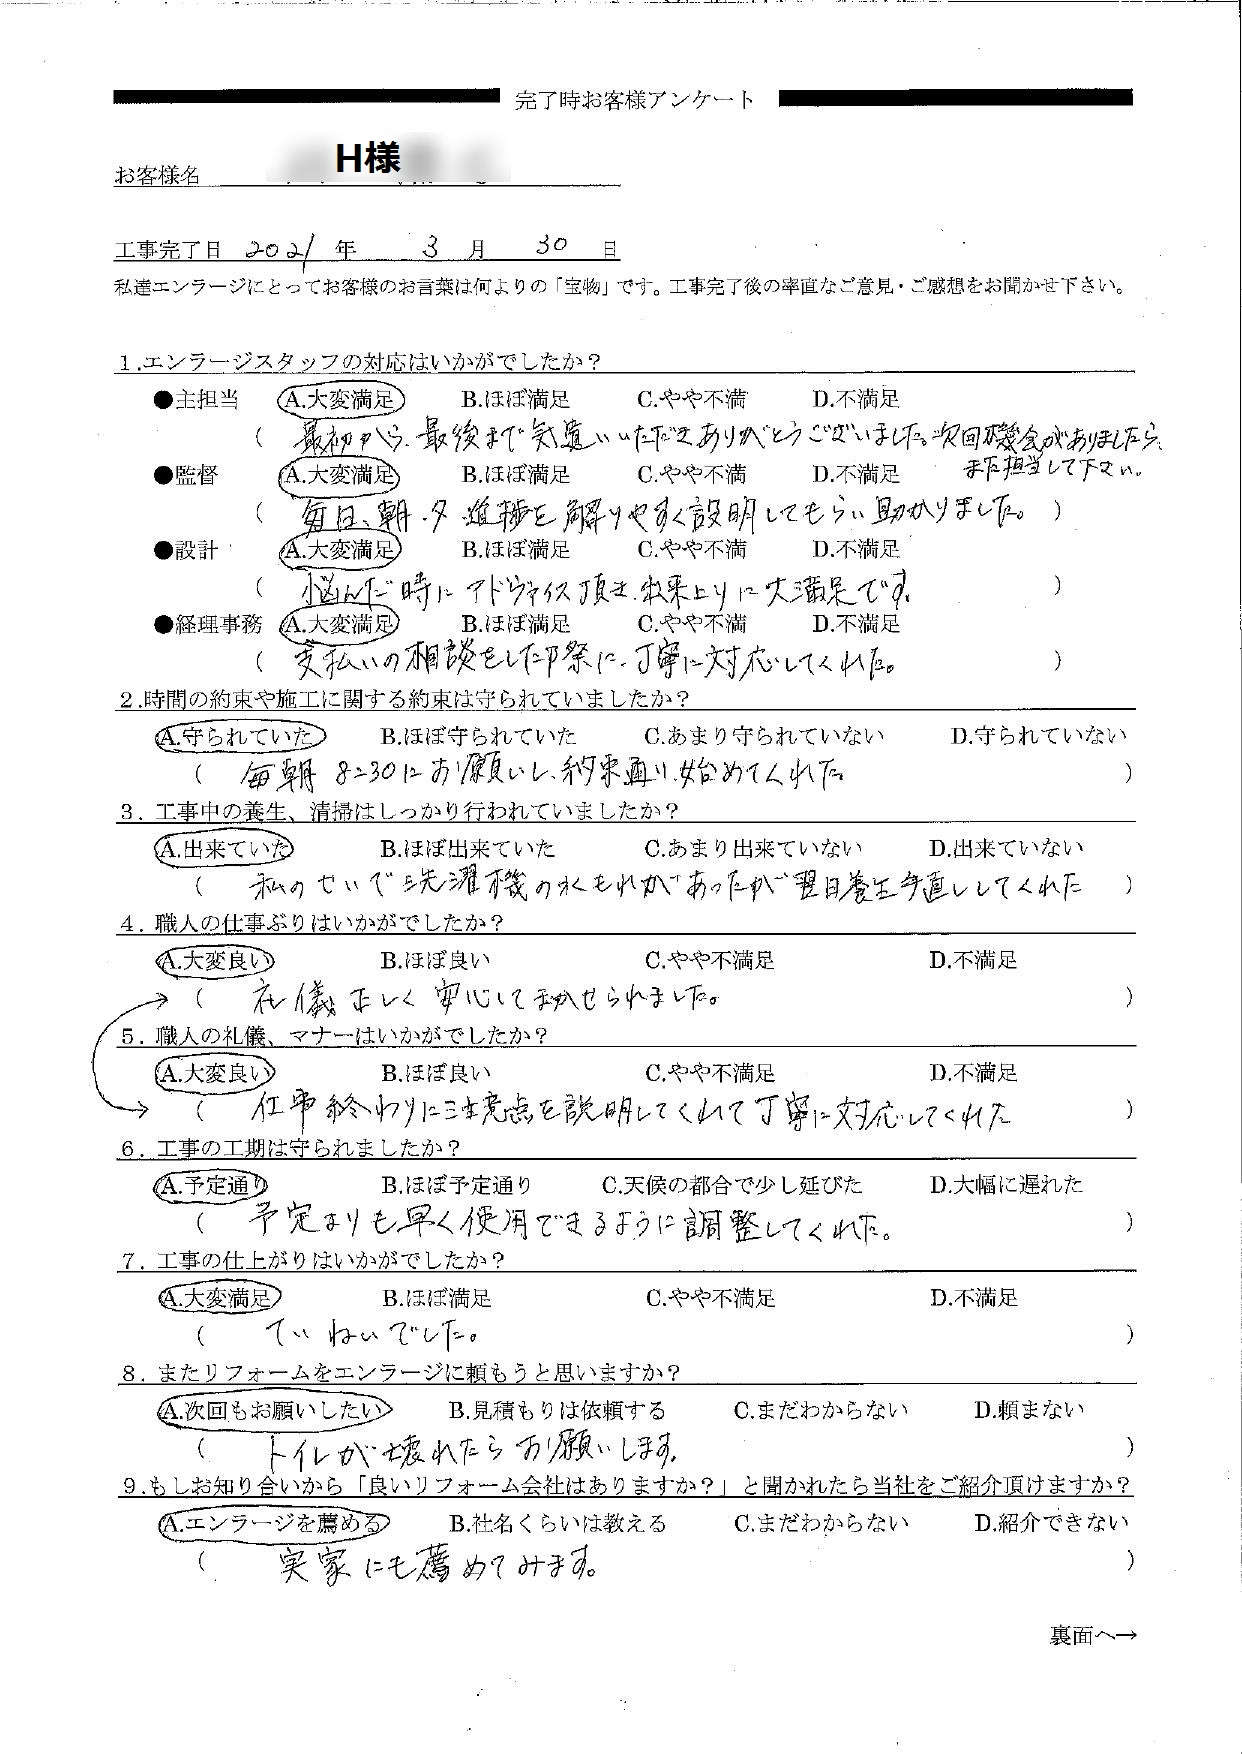 完了時お客様アンケート
お客様名 H様
工事完了日 2021 年 3 月 30 日
私達エンラージにとってお客様のお言葉は何よりの「宝物」です。工事完了後の率直なご意見・ご感想をお聞かせ下さい。
1.エンラージスタッフの対応はいかがでしたか？
●主担当 A.大変満足 B.ほぼ満足 C.やや不満 D.不満足
( 最初から、最後まで気遣いいただきありがとうございました。次回機会がありましたら、
また担当して下さい。
●監督 A.大変満足 B.ほぼ満足 C.やや不満 D.不満足
( 毎日、朝・夕 進捗を解りやすく説明してもらい助かりました。 )
●設計 A.大変満足 B.ほぼ満足 C.やや不満 D.不満足
( 悩んだ時にアドヴァイス頂き、出来上りに大満足です。 )
●経理事務 A.大変満足 B.ほぼ満足 C.やや不満 D.不満足
( 支払いの相談をした際に、丁寧に対応してくれた。 )
2.時間の約束や施工に関する約束は守られていましたか？
A.守られていた B.ほぼ守られていた C.あまり守られていない D.守られていない
( 毎朝 8:30にお願いし、約束通り、始めてくれた。 )
3. 工事中の養生、清掃はしっかり行われていましたか？
A.出来ていた B.ほぼ出来ていた C.あまり出来ていない D.出来ていない
( 私のせいで洗濯機の水もれがあったが翌日養生手直ししてくれた )
4. 職人の仕事ぶりはいかがでしたか？
A.大変良い B.ほぼ良い C.やや不満足 D.不満足
( 礼儀正しく安心してまかせられました。 )
5. 職人の礼儀、マナーはいかがでしたか？
A.大変良い B.ほぼ良い C.やや不満足 D.不満足
( 仕事終わりに注意点を説明してくれて丁寧に対応してくれた )
6. 工事の工期は守られましたか？
A.予定通り B.ほぼ予定通り C.天候の都合で少し延びた D.大幅に遅れた
( 予定よりも早く使用できるように調整してくれた。 )
7. 工事の仕上がりはいかがでしたか？
A.大変満足 B.ほぼ満足 C.やや不満足 D.不満足
( ていねいでした。 )
8. またリフォームをエンラージに頼もうと思いますか？
A.次回もお願いしたい B.見積もりは依頼する C.まだわからない D.頼まない
( トイレが壊れたらお願いします。 )
9.もしお知り合いから「良いリフォーム会社はありますか？」と聞かれたら当社をご紹介頂けますか？
A.エンラージを薦める B.社名くらいは教える C.まだわからない D.紹介できない
( 実家にも薦めてみます。 )
裏面へ→